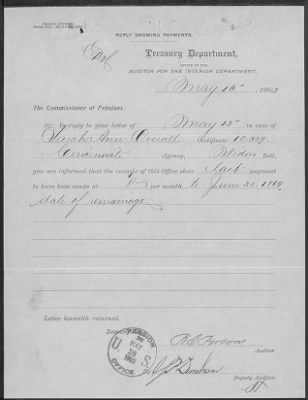 REPLY SHOWING PAYMENTS.
Treasury Department,
OFFICE OF THE
AUDITOR FOR THE INTERIOR DEPARTMENT,
May 16", 1903
The Commissioner of Pensions.
Sir: In reply to your letter of May 12" in case of
Ann Certificate 10.329
Cincinnati Agency, Widow Roll,
you are informed that the records of this Office show last payment
to have been made at 8 per month to June 30. 1869,
date of remarriage
Letter herewith returned.
Respectfully,
Auditor.
Deputy Auditor.
PENSION
U. S.
MAY
OFFICE